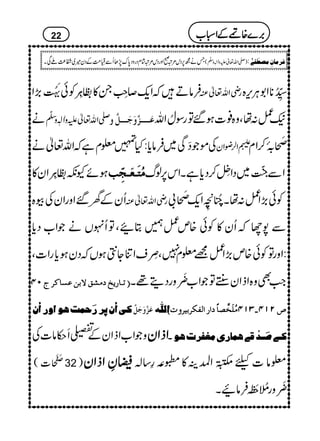 بُرے خاتمے کے اسباب 22
فرمانِ مصطفٰے: (صلی اللہ تعالیٰ علیہ والہ وسلم) جس نے مجھ پر دس مرتبہ صبح اور دس مرتبہ شام درود پاک پڑھا اُسے قیامت کے دن میری شفاعت ملے گی۔
سیِّدُنا ابوہریرہ رضی اللہ تعالیٰ عنہ فرماتے ہیں کہ ایک صاحِب جن کا بظاہر کوئی بَہُت بڑا
نیک عمل نہ تھا، وہ فوت ہوگئے تو رسول اللہ عَزَّوَجَلَّ وصلی اللہ تعالیٰ علیہ والہ وسلم نے
صَحابَۂ کرام علیہم الرضوان کی موجودَگی میں فرمایا: کیا تمہیں معلوم ہے کہ اللہ تعالیٰ نے
اسے جنّت میں داخِل کردیا ہے۔ اس پر لوگ مُتَعَجِّب ہوئے کیونکہ بظاہر ان کا
کوئی بڑا عمل نہ تھا۔ چُنانچِہ ایک صَحابی رضی اللہ تعالیٰ عنہ اُن کے گھر گئے اور ان کی بیوہ
سے پوچھا کہ اُن کا کوئی خاص عمل ہمیں بتائیے، تو انہوں نے جواب دیا
: اور تو کوئی خاص بڑا عمل مجھے معلوم نہیں، صِرف اتنا جانتی ہوں کہ دن ہو یا رات،
جب بھی وہ اذان سنتے تو جواب ضَرور دیتے تھے۔ (تاریخ دمشق لابن عساکر ج ۴۰
ص ۴۱۲، ۴۱۳ مُلَخَّصاً دار الفکر بیروت) اللہ عَزَّوَجَلَّ کی اُن پر رَحمت ہو اور اُن
کے صَدقے ہماری مغفرت ہو۔ اذان و جوابِ اذان کے تفصیلی اَحکامات کی
معلومات کیلئے مکتبۃ المدینہ کا مطبوعہ رِسالہ فیضانِ اذان (32 صَفَحات)
ضَرور مُلاحَظہ فرمائیے۔